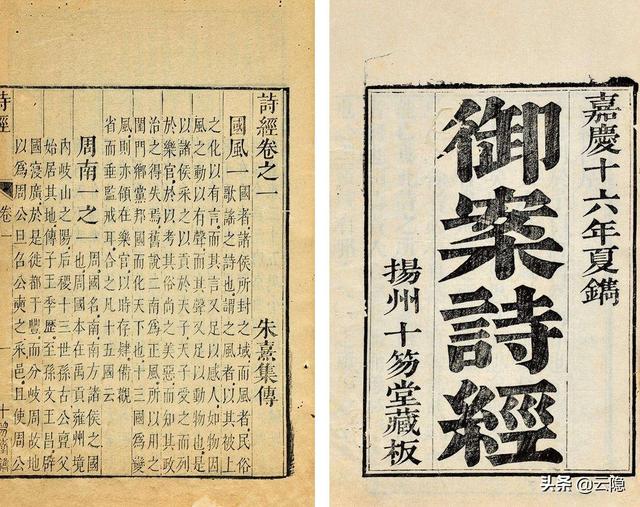 嘉慶十六年夏鐫
御案詩經
揚州十笏堂藏板
詩經卷之一
朱熹集傳
國風一
國者諸侯所封之域而風者民俗
歌謠之詩也謂之風者以其被上
之化以有言而其言又足以感人如物因
風之動以有聲而其聲又足以動物也是
以諸侯采之以貢於天子天子受之而列
於樂官於以考其俗尚之美惡而知其政
治之得失焉舊說二南為正風所以用之
閨門鄉黨邦國而化天下也十三國為變
風則亦領在樂官以時存肄備觀
省而垂監戒耳合之凡十五國云
周南一之一
周國名南南方諸侯之國
也周國本在禹貢雍州境
內岐山之陽后稷十三世孫古公亶父
始居其地傳子王季歷至孫文王昌辟
國寖廣於是徙都于豐而分岐周故地
以為周公旦召公奭之采邑且使周公
詩經
卷一
一
十笏堂
头条 @云隐